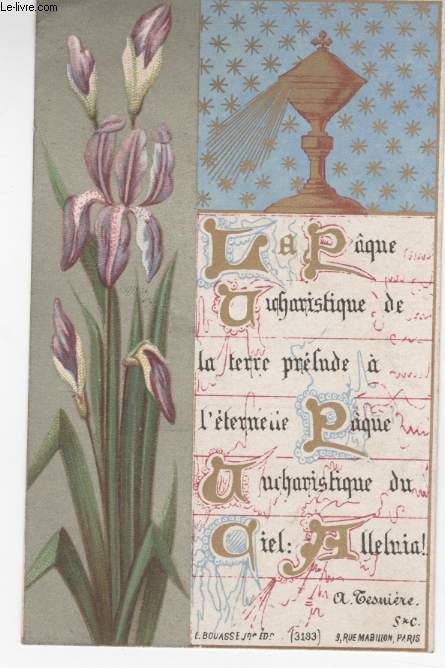 Le-livre.com
La Pâque
Eucharistique de
la terre prélude à
l'éternelle Pâque
Eucharistique du
Ciel: Alleluia!
A. Tesnière.
S.x.C.
E. BOUASSE Jne ÉDr. (3183) 9, RUE MABILLON, PARIS